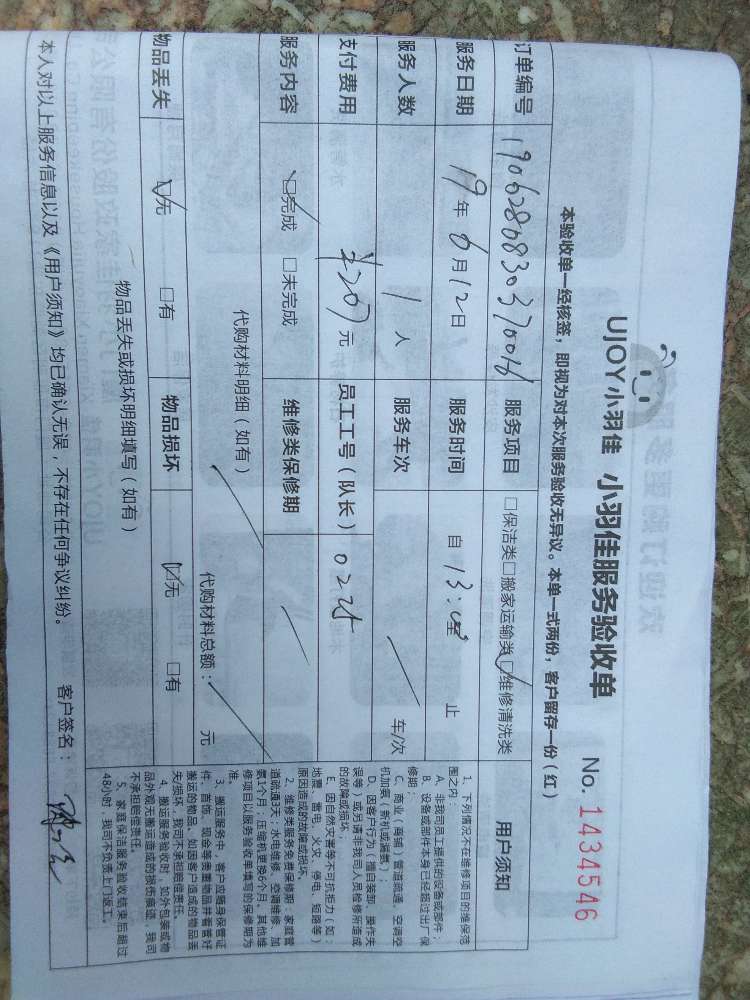 UJOY小羽佳 小羽佳服务验收单 No. 1434546
本验收单一经核签，即视为对本次服务验收无异议。本单一式两份，客户留存一份（红）
订单编号 服务项目 □保洁类□搬家运输类☑维修清洗类
服务日期 19年6月12日 服务时间 自 13: 止
服务人数 1人 服务车次 车/次
支付费用 元 员工工号（队长）
服务内容 ☑完成 □未完成 维修类保修期
代购材料明细（如有） 代购材料总额： 元
物品丢失 ☑无 □有 物品损坏 ☑无 □有
物品丢失或损坏明细填写（如有）
本人对以上服务信息以及《用户须知》均已确认无误，不存在任何争议纠纷。 客户签名：
用户须知
1、下列情况不在维修项目的维保范
围之内：
A、非我司员工提供的设备或部件；
B、设备或部件本身已经超过出厂保
修期；
C、商业（商铺）管道疏通、空调空
机加氨（新机或漏氨）；
D、因客户行为（擅自装卸、操作失
误等）或另请非我司人员检修所造成
的故障或损坏；
E、因自然灾害等不可抗拒力（如：
地震、雷电、火灾、停电、短路等）
原因造成的故障或损坏。
2、维修类服务免费保修期：家庭管
道疏通3天；水电维修、空调维修、加
氨1个月；压缩机更换6个月。其他维
修项目以服务验收单填写的保修期为
准。
3、搬运服务中，客户应随身保管证
件、首饰、现金等贵重物品并看管好
搬运的物品。如因客户造成的物品丢
失/损坏，我司不承担赔偿责任。
4、搬运服务验收时，如外包装或物
品外观无搬运造成的损伤痕迹，我司
不承担赔偿责任。
5、家庭保洁服务验收结束后超过
48小时，我司不负责上门返工。